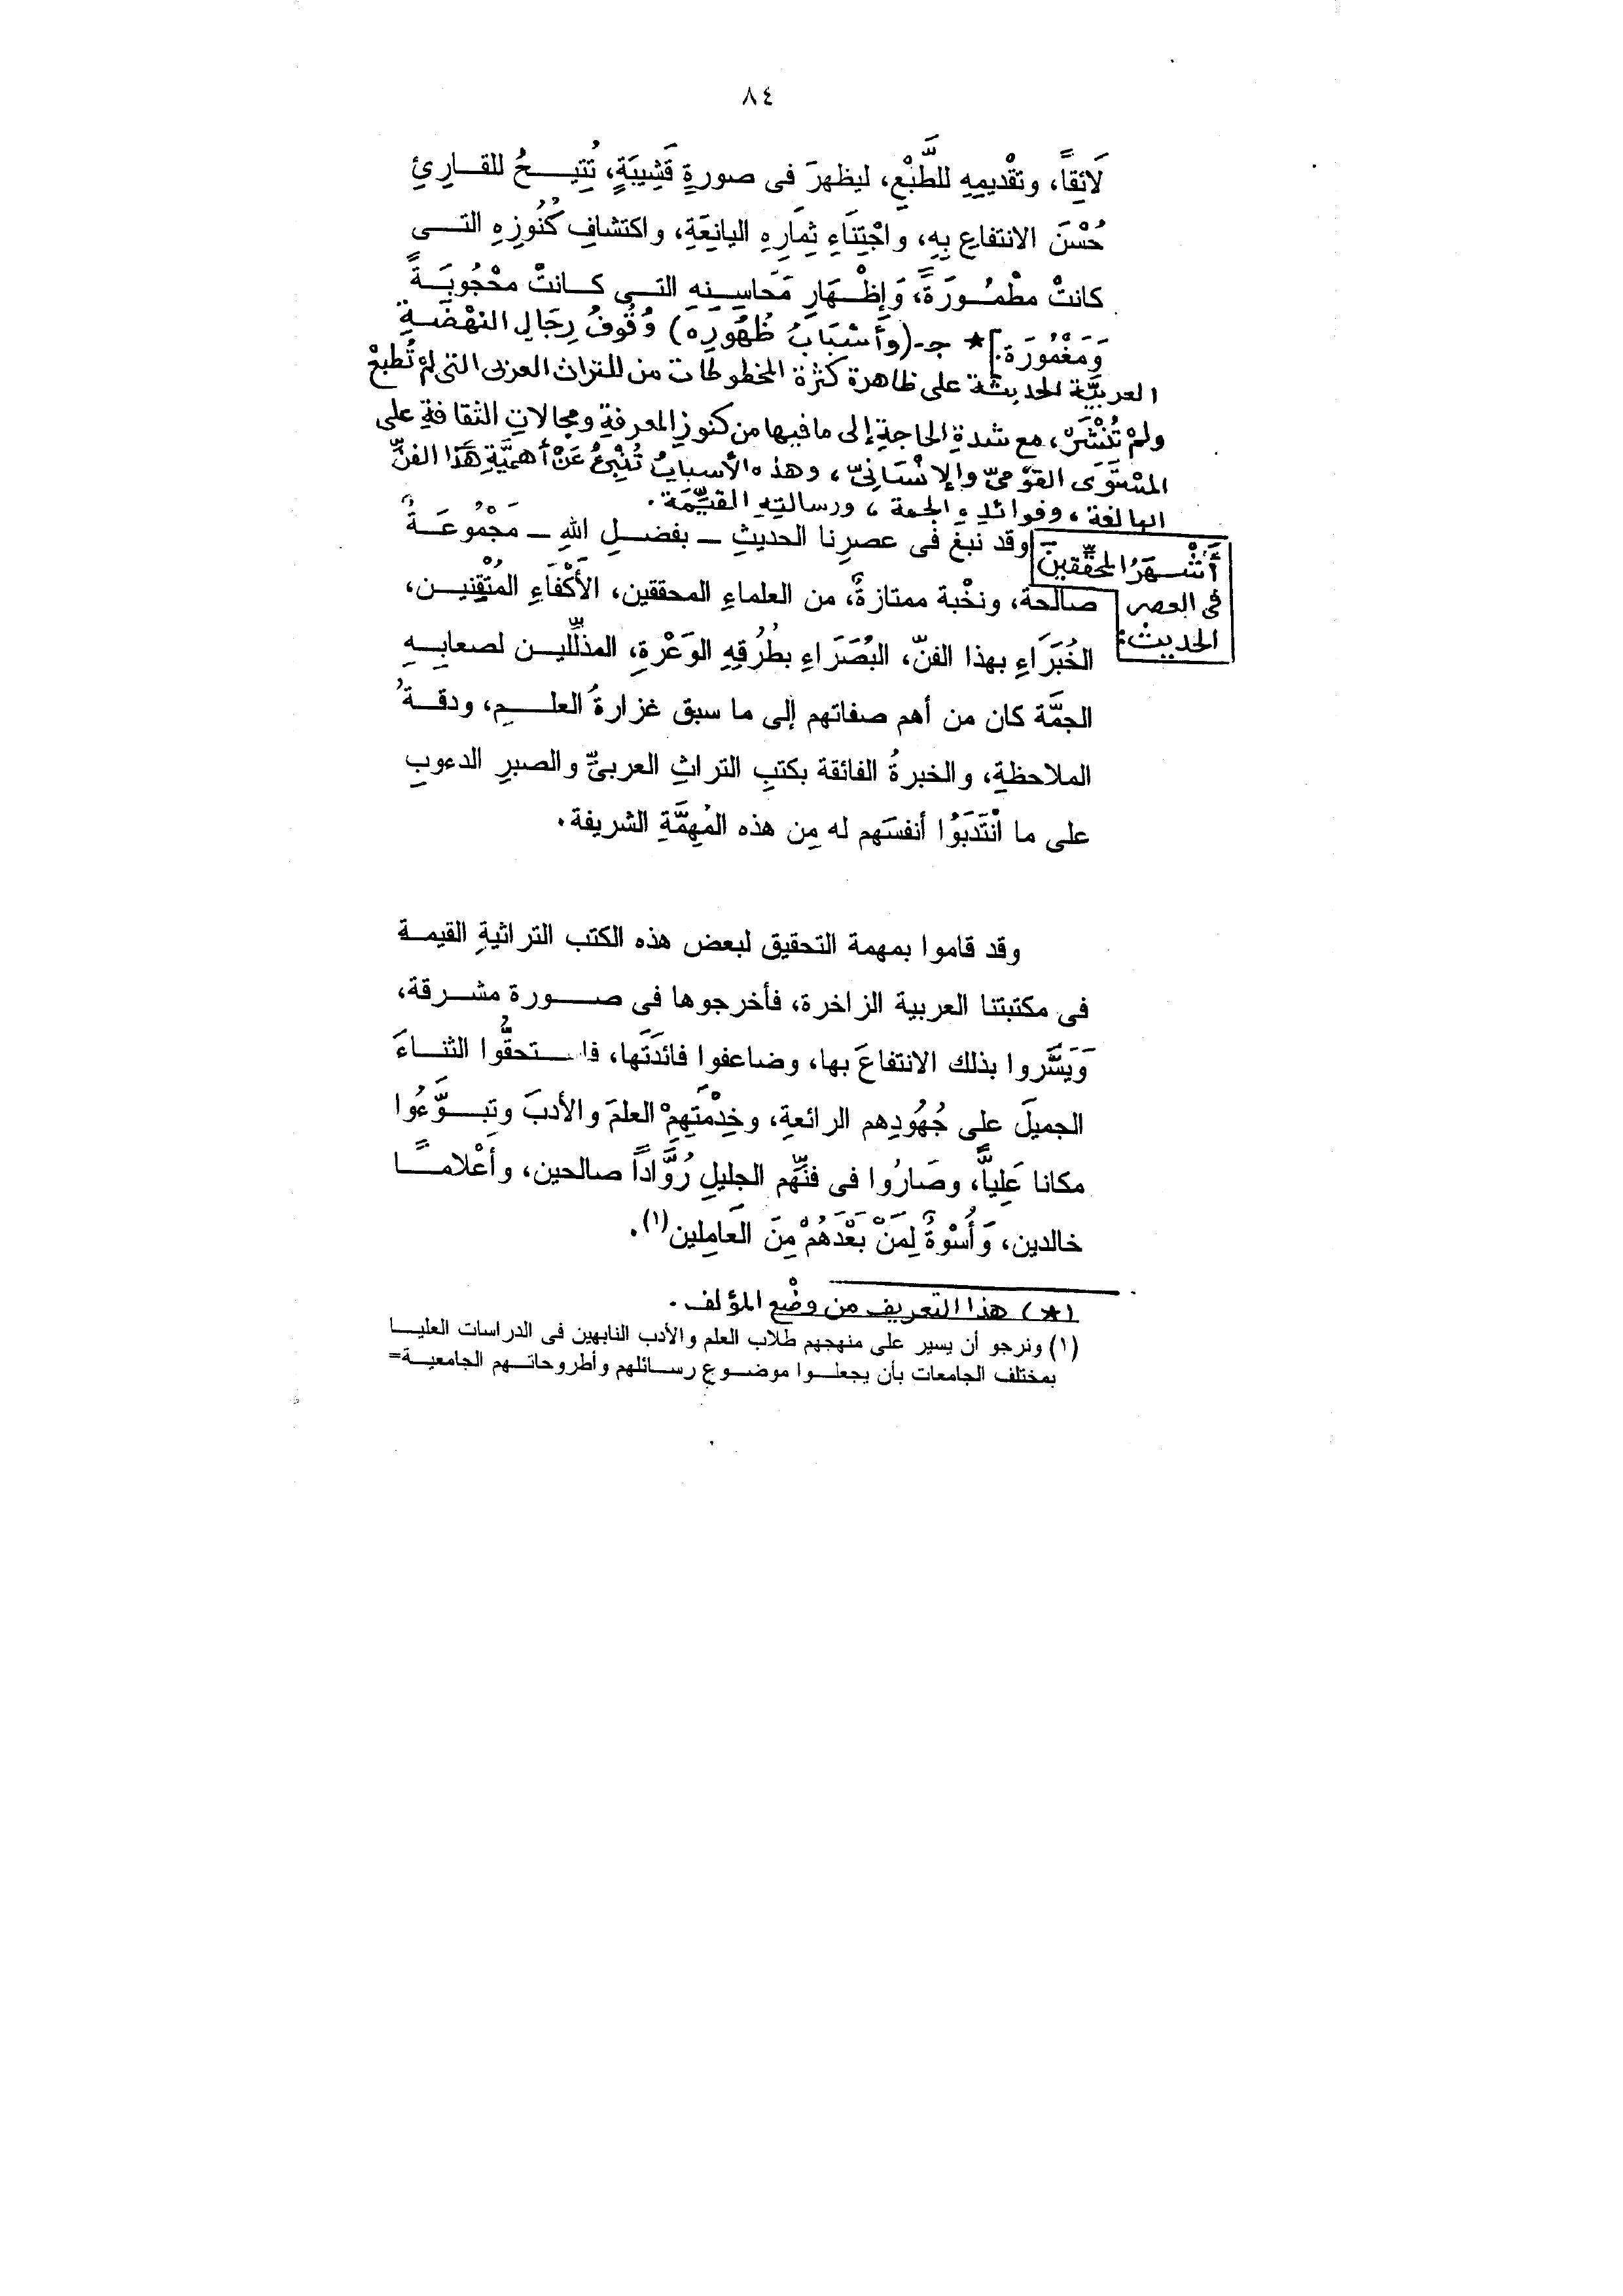 ٨٤
لَائِقاً، وتقْديمِهِ للطَّبْعِ، ليظهرَ فى صورةٍ قَشِيبَةٍ، تُتِيــــحُ للقــارِئِ
حُسْنَ الانتفاعِ بِهِ، واجْتِنَاءِ ثِمَارِهِ اليانِعَةِ، واكتشافِ كُنُوزِهِ التــى
كانتْ مطْمُـورَةً، وَإِظْـهَارِ مَحَاسِـنِهِ التــى كــانتْ محْجُوبَــةً
وَمَغْمُورَة.] * جـ-(وأَسْبَابُ ظُهُورِه) وُقُوفُ رِجَالِ النهْضَةِ
العربيَّة الحديثة على ظاهرة كثرة المخطوطات من للتراث العربى التى لمْ تُطبعْ
ولمْ تُنْشَرْ، مع شدةِ الحاجةِ إلى ما فيها من كنوزِ المعرفةِ ومجالاتِ الثقافةِ على
المسْتَوَى القوْمىّ والإنْسَانىّ، وهذه الأسبابُ تُنْبِئُ عَنْ أهميَّةِ هَذَا الفنِّ
البالغة، وفوائدِهِ الجمة، ورسالتِهِ القيِّمَة.
أَشْـهَرُ المحقِّقينَ
فى العصر
الحديث:
وقد نبغ فى عصرِنا الحديثِ ــ بفضــلِ اللهِ ــ مَجْمُوعَــةٌ
صالحة، ونخْبة ممتازةٌ، من العلماءِ المحققين، الأَكْفَاءِ المُتْقِنيــن،
الخُبَرَاءِ بهذا الفنّ، البُصَرَاءِ بطُرُقِهِ الوَعْرةِ، المذلِّليــن لصعابِــهِ
الجمَّة كان من أهم صفاتهم إلى ما سبق غزارةُ العلـــمِ، ودقــةُ
الملاحظةِ، والخبرةُ الفائقة بكتبِ التراثِ العربىِّ والصبرِ الدءوبِ
على ما انْتَدَبَوُا أنفسَهم له مِن هذه المُهِمَّةِ الشريفة.
وقد قاموا بمهمة التحقيق لبعض هذه الكتب التراثيةِ القيمــة
فى مكتبتنا العربية الزاخرة، فأخرجوها فى صــــورة مشــرقة،
وَيَسَّروا بذلك الانتفاعَ بها، وضاعفوا فائدَتَها، فاستحقُّوا الثنــاءَ
الجميلَ على جُهُودِهم الرائعةِ، وخِدْمَتِهِمْ العلمَ والأدبَ وتبــوَّءُوا
مكانا عَلِيًّا، وصَارُوا فى فنِّهم الجليلِ رُوَّاداً صالحين، وأعْلامــًا
خالدين، وَأُسْوةٌ لِمَنْ بَعْدَهُمْ مِنَ العَامِلين(١).
(*) هذا التعريف من وضْع المؤلف.
(١) ونرجو أن يسير على منهجهم طلاب العلم والأدب النابهين فى الدراسات العليــا
بمختلف الجامعات بأن يجعلــوا موضــوع رســائلهم وأطروحاتــهم الجامعيــة=